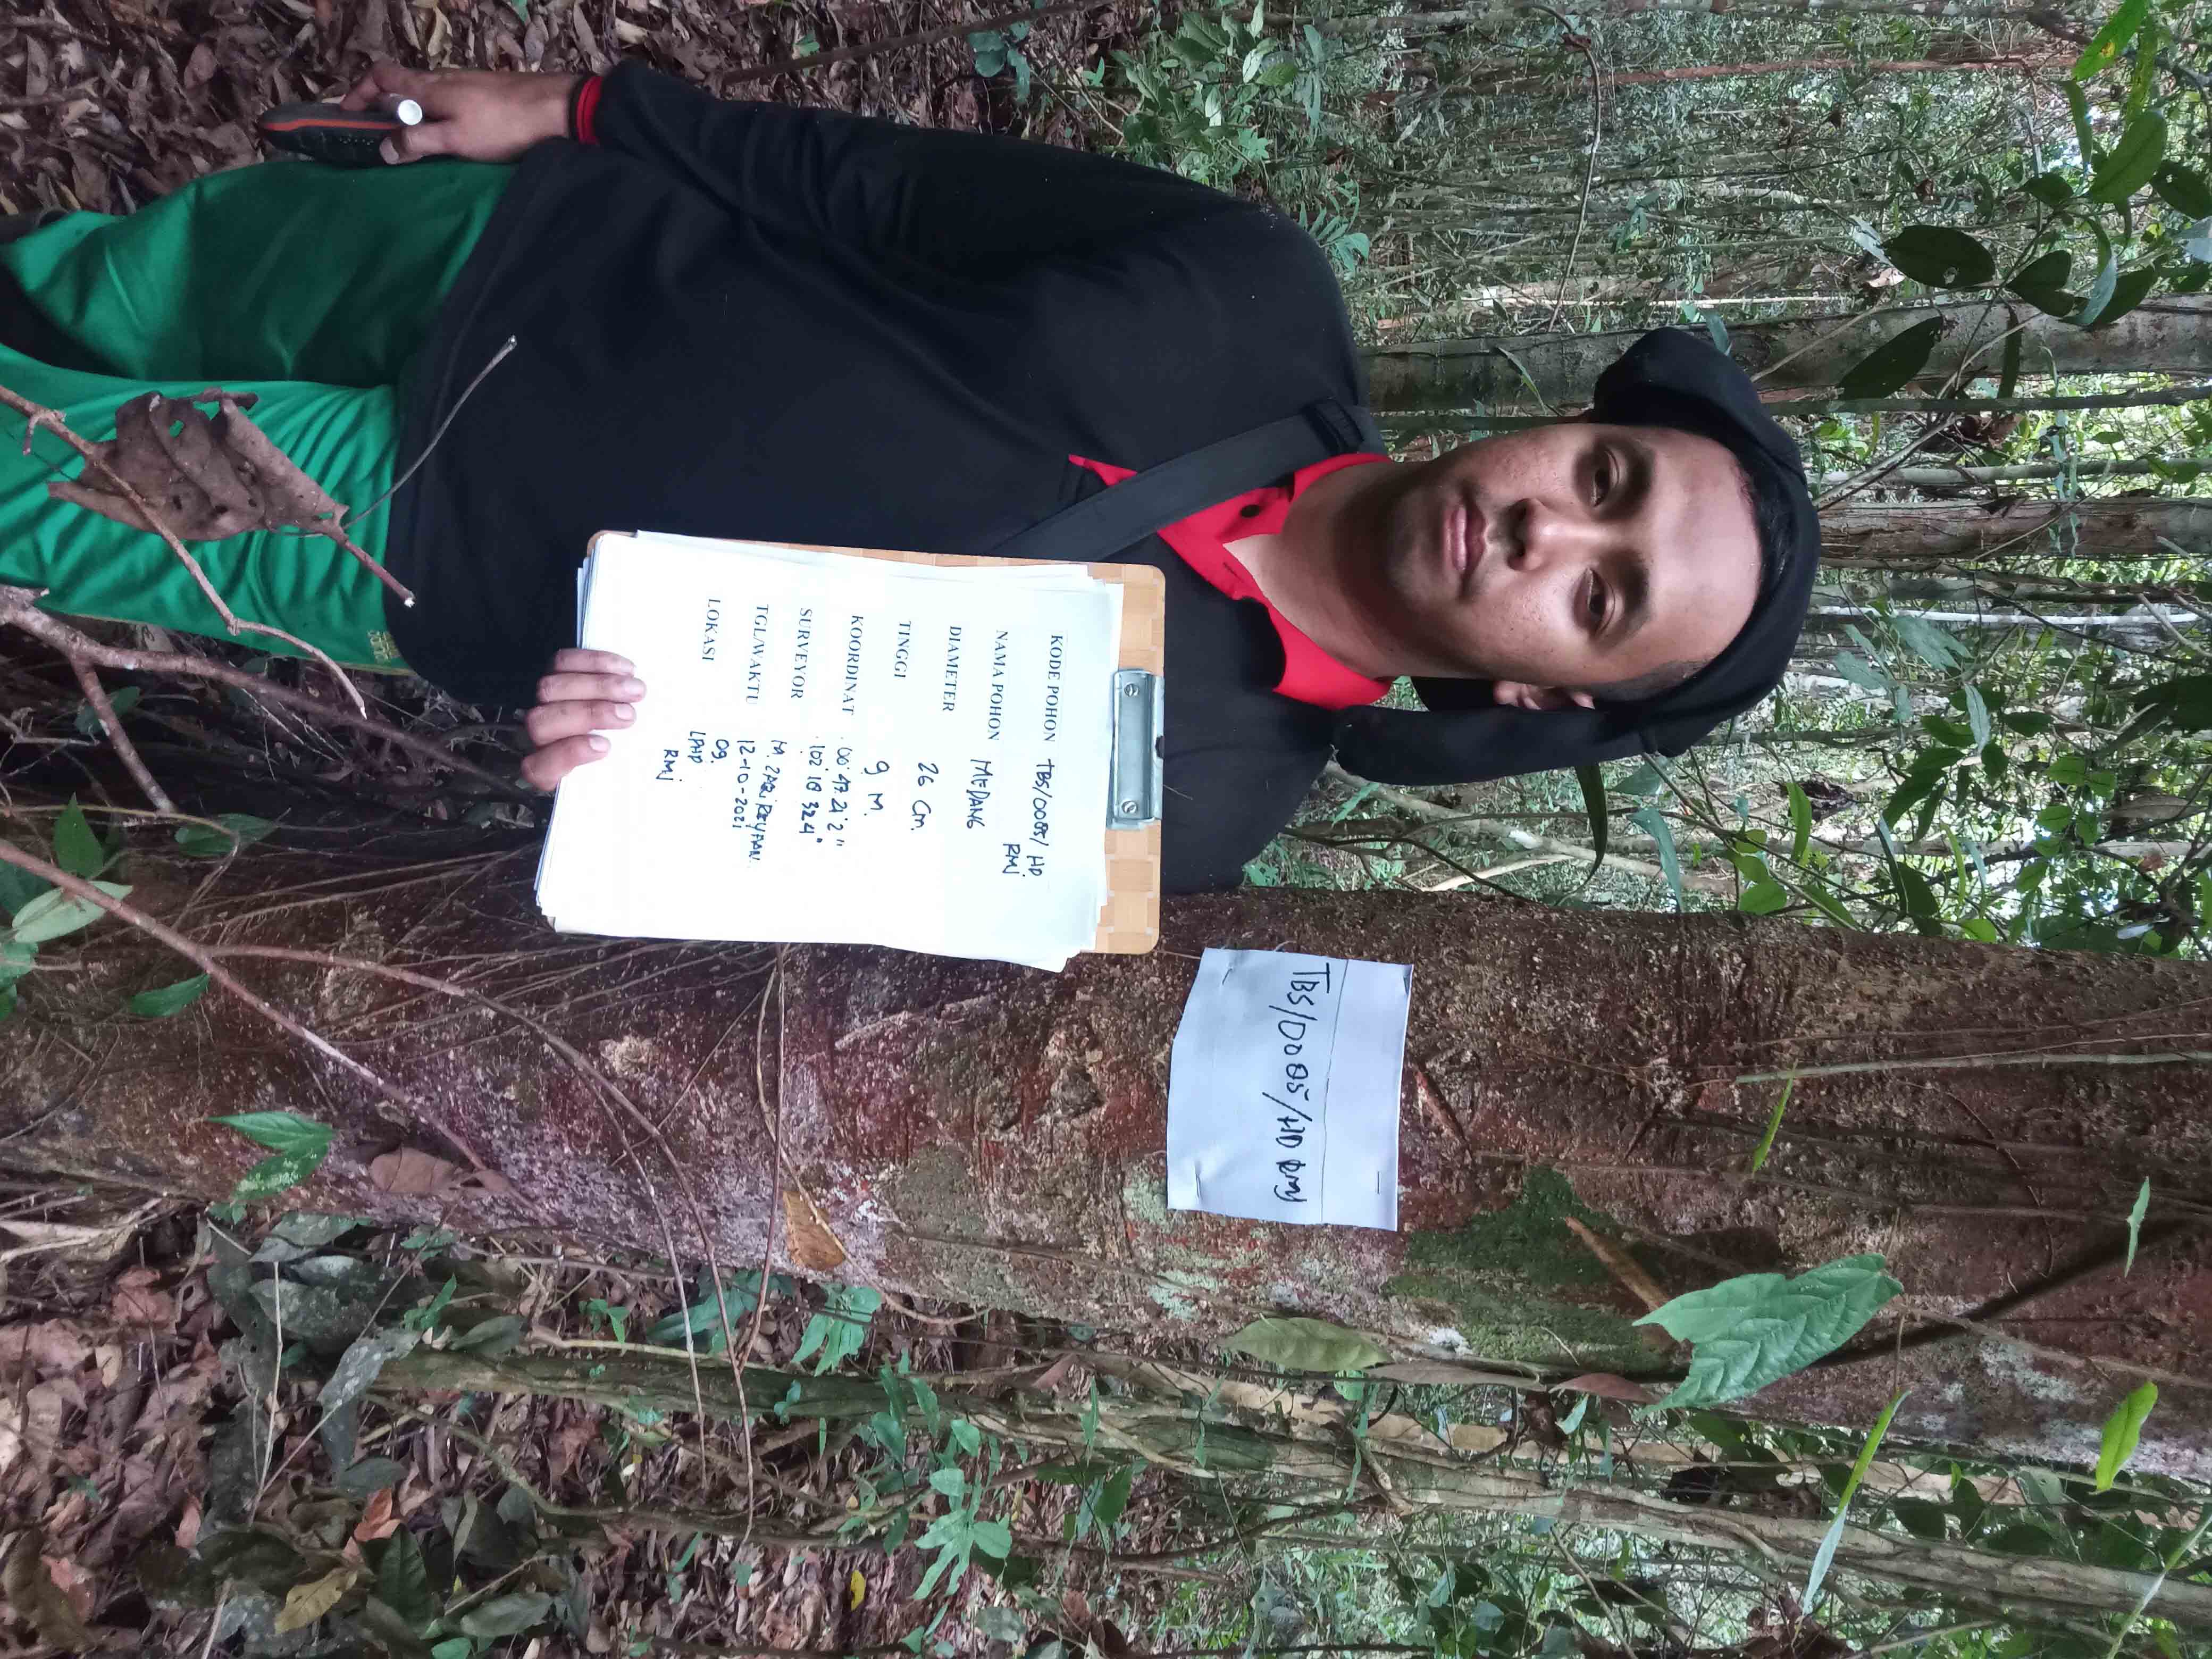 TBS/0085/HD RMJ
KODE POHON TBS/0085/ HD.
RMJ
NAMA POHON MEDANG
DIAMETER 26 cm.
TINGGI 9 M.
KOORDINAT 00° 47' 21' 2"
102° 18' 324"
SURVEYOR M.
TGL/WAKTU 12-10-2021
09.
LOKASI LPHP
RMJ
adidas